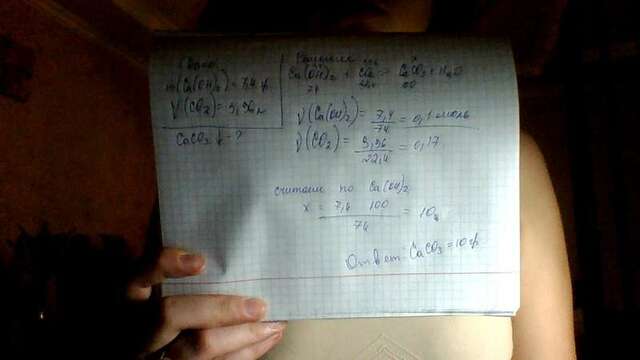 Дано:
m(Ca(OH)₂) = 7,4 гр
V(CO₂) = 3,96 л
CaCO₃ ↓ - ?
Решение
Ca(OH)₂ + CO₂ = CaCO₃ + H₂O
74
ν(Ca(OH)₂) = 7,4 / 74 = 0,1 моль
ν(CO₂) = 3,96 / 22,4 = 0,17
считаем по Ca(OH)₂
x = 7,4 100 / 74 = 10
Ответ: CaCO₃ = 10 гр.